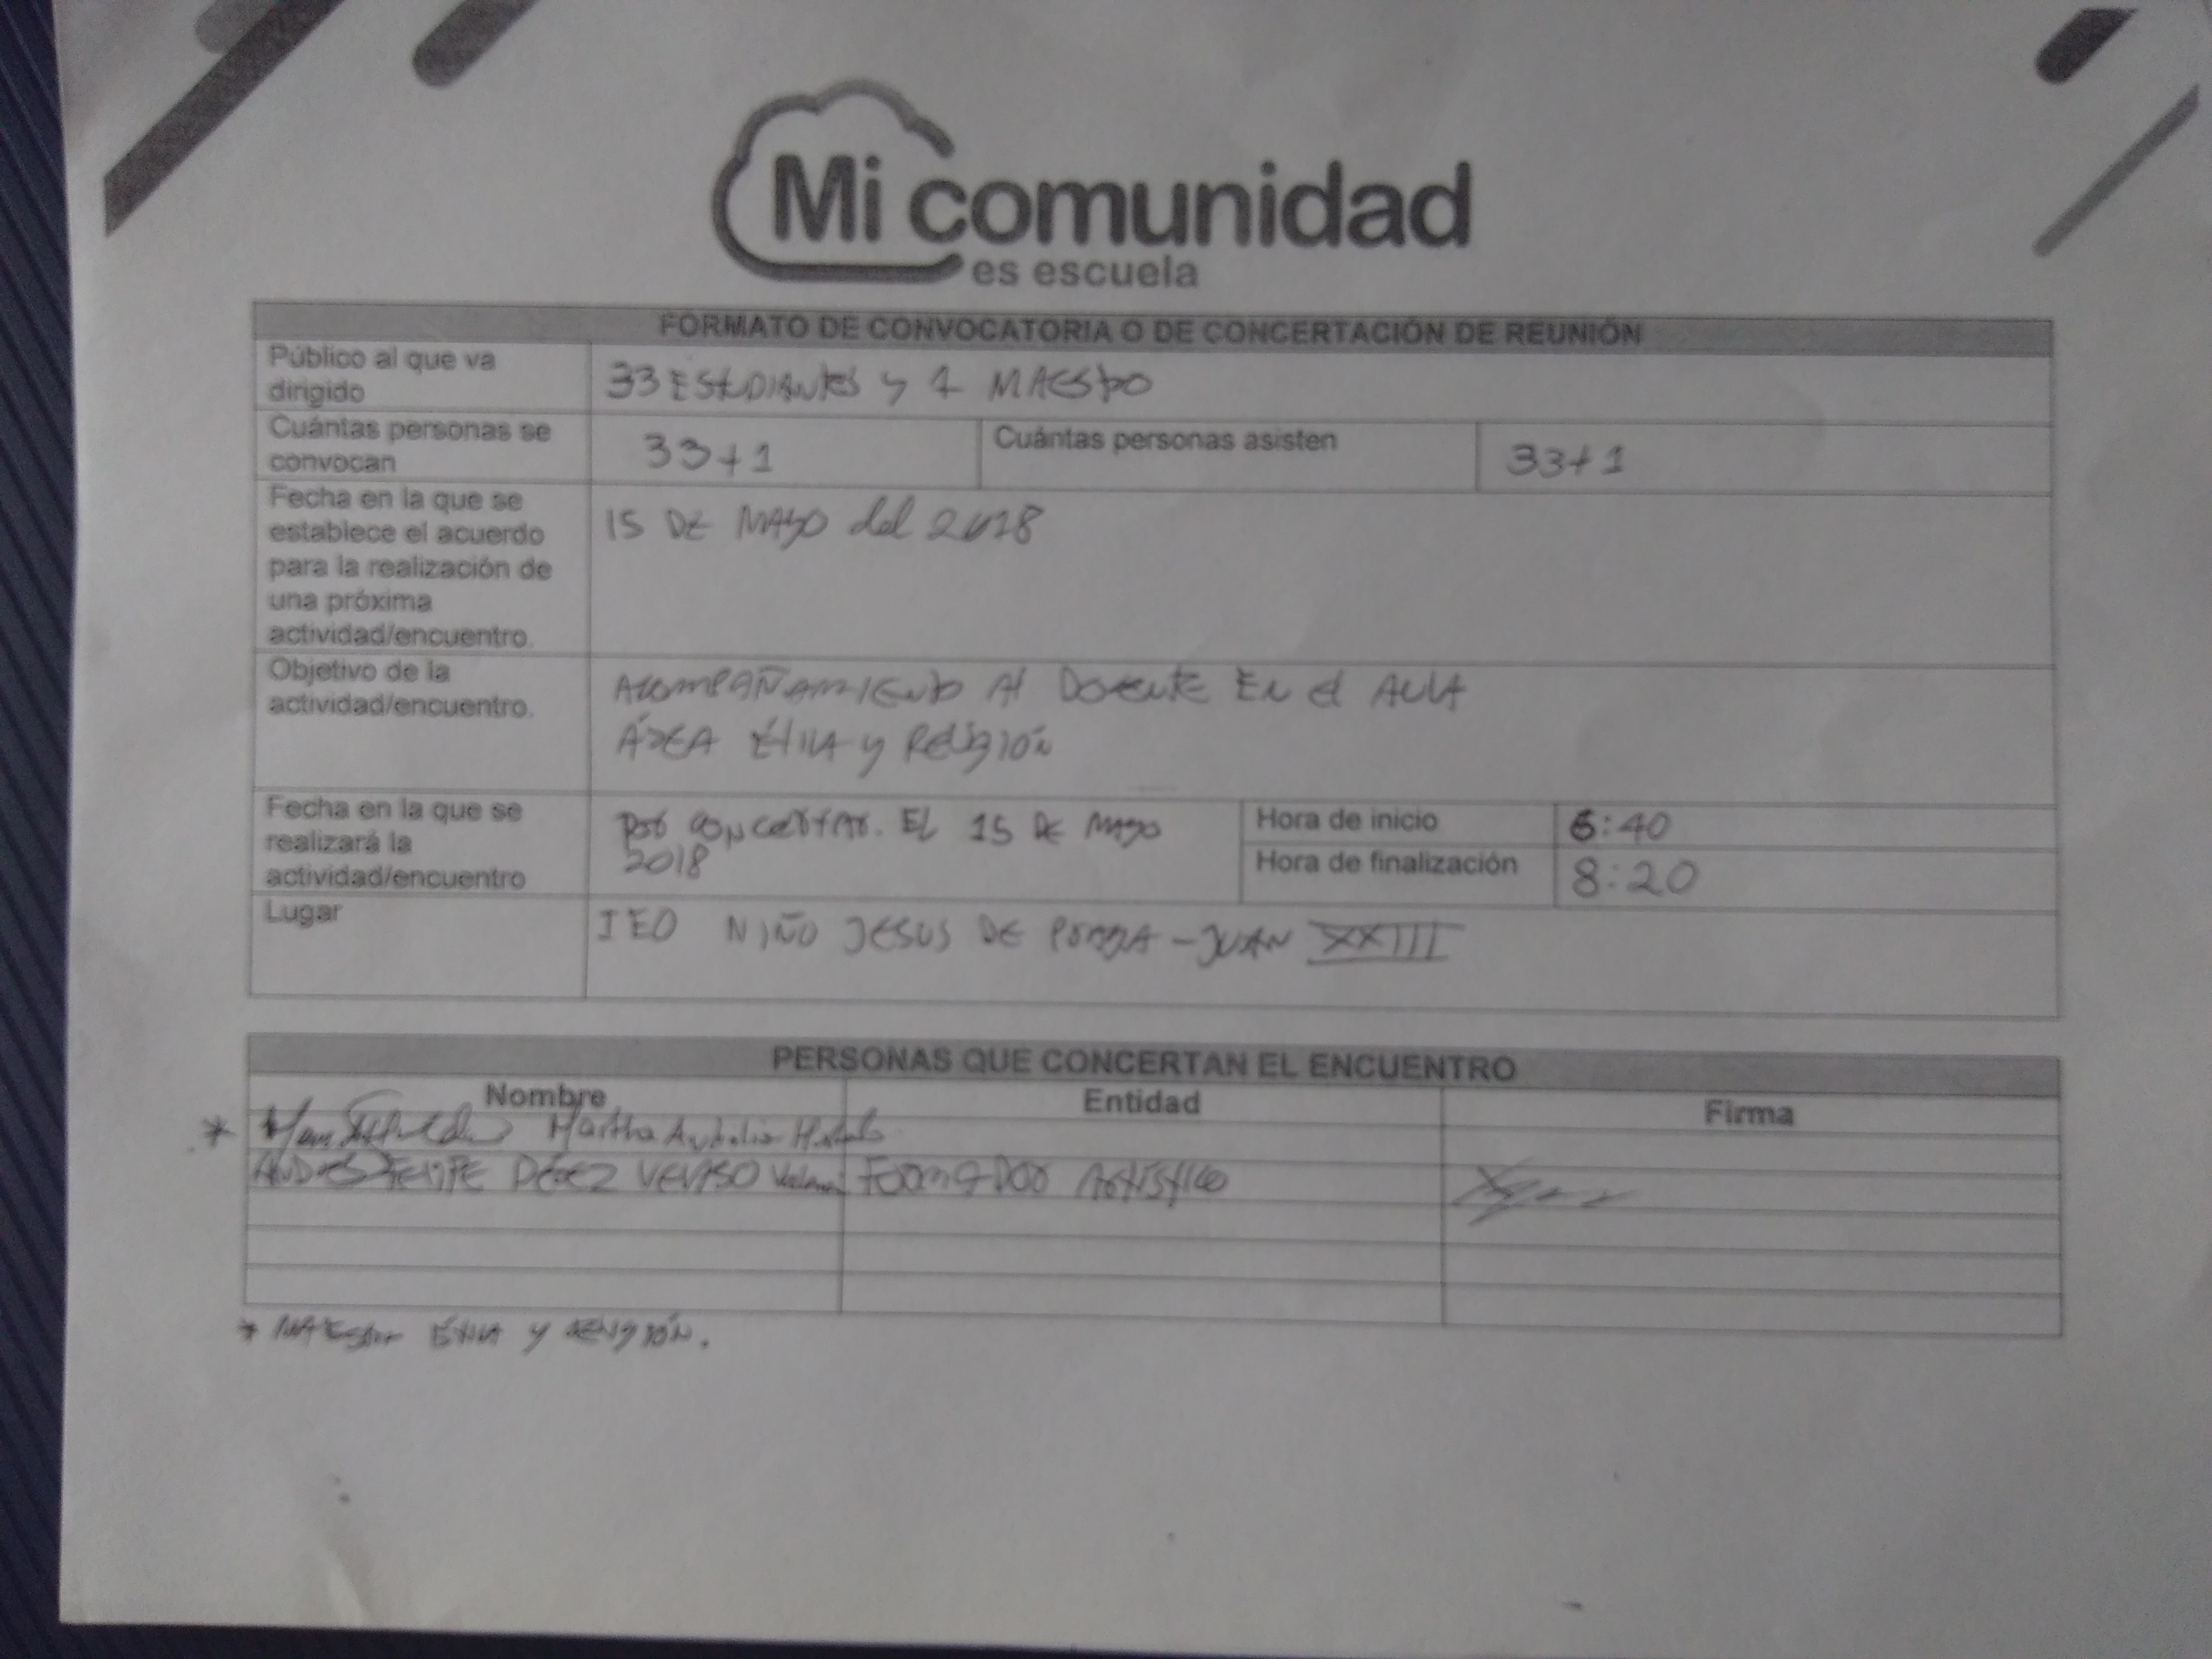 Mi comunidad
es escuela
FORMATO DE CONVOCATORIA O DE CONCERTACIÓN DE REUNIÓN
Público al que va
dirigido
33 ESTUDIANTES y 1 MAESTRO
Cuántas personas se
convocan
33+1
Cuántas personas asisten
33+1
Fecha en la que se
establece el acuerdo
para la realización de
una próxima
actividad/encuentro.
15 DE MAYO del 2018
Objetivo de la
actividad/encuentro.
ACOMPAÑAMIENTO Al DOCENTE EN el AULA
ÁREA ÉTICA y RELIGIÓN
Fecha en la que se
realizará la
actividad/encuentro
POR CONCERTAR. EL 15 DE MAYO
2018
Hora de inicio
6:40
Hora de finalización
8:20
Lugar
IEO NIÑO JESUS DE PRAGA - JUAN XXIII
PERSONAS QUE CONCERTAN EL ENCUENTRO
Nombre
Entidad
Firma
* Martha
ANDRES FELIPE PÉREZ FORMADOR ARTÍSTICO
* MAESTRA ÉTICA y RELIGIÓN.